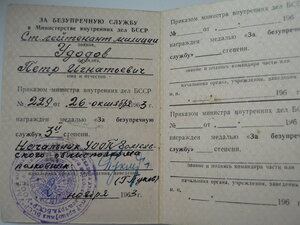 ЗА БЕЗУПРЕЧНУЮ СЛУЖБУ
в Министерстве внутренних дел БССР
Ст. лейтенант милиции
звание,
Удодов
фамилия,
Петр Игнатьевич
имя и отчество
Приказом министра внутренних дел БССР
№ 229 от 26 октября 1963 г.
награжден медалью «За безупречную
службу» 3й степени.
Начальник УООП
полковник
ноября 1963 г.
Приказом министра внутренних дел БССР
№ от 196
награжден медалью «За безупречную
службу» степени.
звание и подпись командира части или
начальника органа, учреждения, заведения
м. п. 196 г.
Приказом министра внутренних дел БССР
№ от 196
награжден медалью «За безупречную
службу» степени.
звание и подпись командира части или
начальника органа, учреждения, заведения
м. п. 196 г.